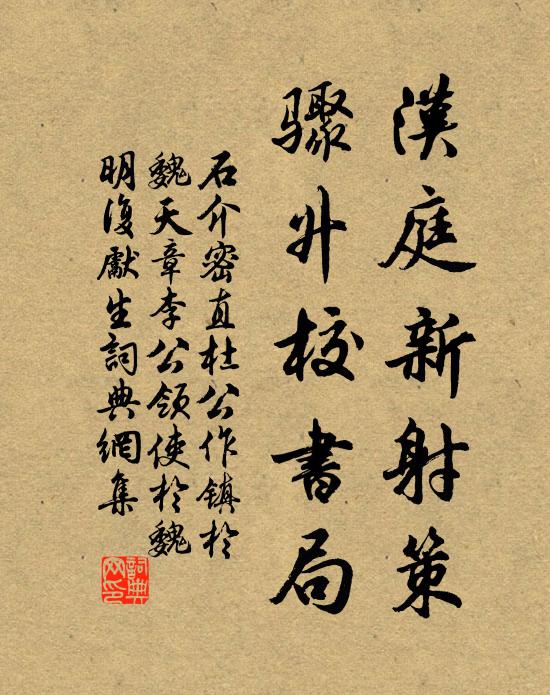 漢庭新射策
驟升校書局
石介密直杜公作鎮於
魏天章李公領使於魏
明復獻生詞典網集
詞典
网印